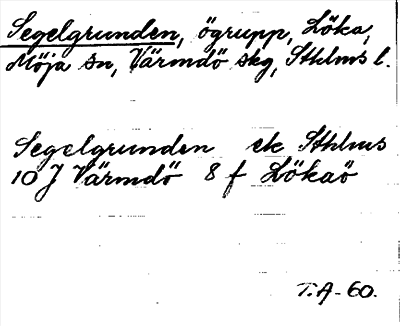 Segelgrunden, ögrupp, Löka,
Möja sn, Värmdö skg, Sthlms l.
Segelgrunden ek Sthlms
10 J Värmdö 8 f Lökaö
T.A-60.